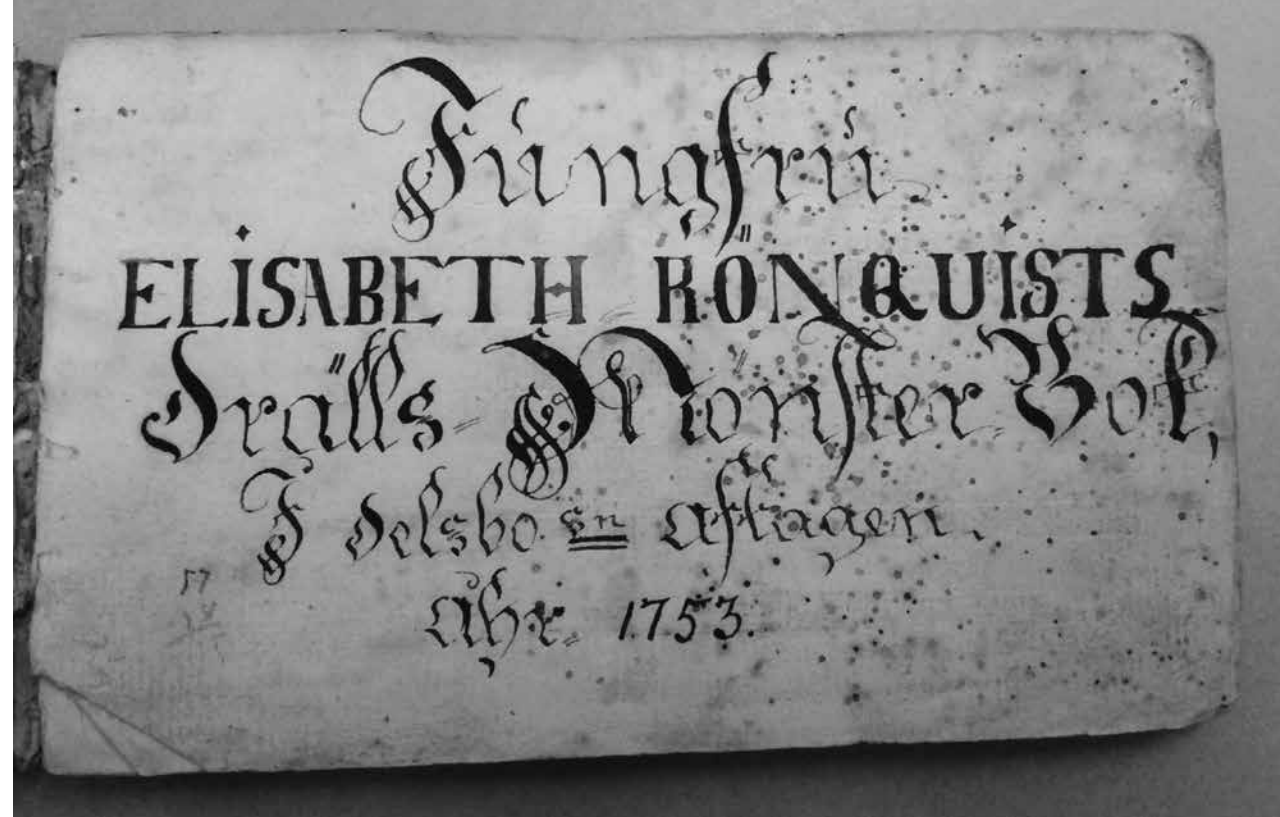 Jungfru
ELISABETH RÖNQUISTS
Drälls-Mönster Bok,
I Delsbo Sn Aftagen.
Åhr 1753.
57